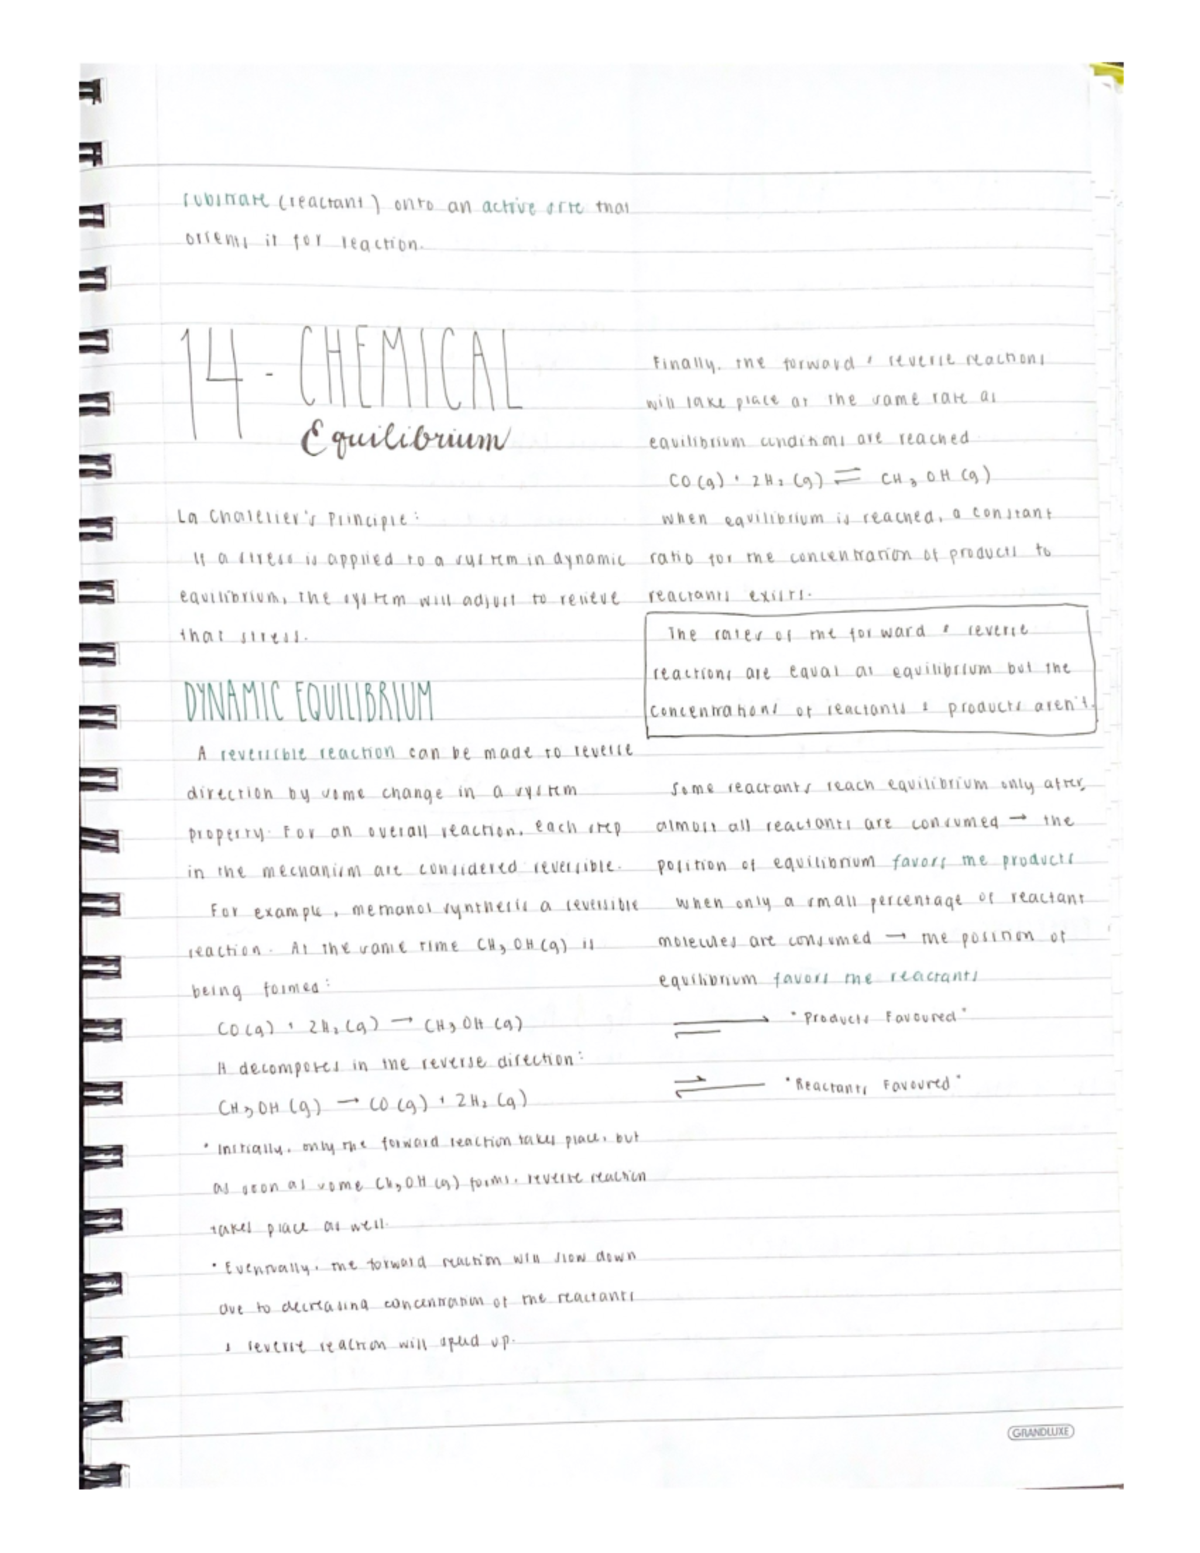 substrate (reactant) onto an active site that
orients it for reaction.
14 - CHEMICAL
Equilibrium
La Chatelier's Principle:
If a stress is applied to a system in dynamic
equilibrium, the system will adjust to relieve
that stress.
DYNAMIC EQUILIBRIUM
A reversible reaction can be made to reverse
direction by some change in a system
property. For an overall reaction, each step
in the mechanism are considered reversible.
For example, methanol synthesis a reversible
reaction. At the same time CH₃OH(g) is
being formed:
CO(g) + 2H₂(g) → CH₃OH(g)
It decomposes in the reverse direction:
CH₃OH(g) → CO(g) + 2H₂(g)
• Initially, only the forward reaction takes place, but
as soon as some CH₃OH(g) forms, reverse reaction
takes place as well.
• Eventually, the forward reaction will slow down
due to decreasing concentration of the reactants
& reverse reaction will speed up.
Finally, the forward & reverse reactions
will take place at the same rate as
equilibrium conditions are reached
CO(g) + 2H₂(g) ⇌ CH₃OH(g)
When equilibrium is reached, a constant
ratio for the concentration of products to
reactants exists.
The rates of the forward & reverse
reactions are equal at equilibrium but the
concentrations of reactants & products aren't.
Some reactants reach equilibrium only after
almost all reactants are consumed → the
position of equilibrium favors the products
When only a small percentage of reactant
molecules are consumed → the position of
equilibrium favors the reactants
"Products Favoured"
"Reactants Favoured"
GRANDLUXE